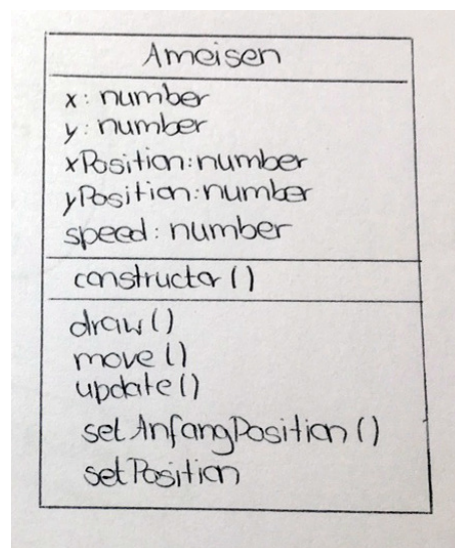 Ameisen
x: number
y: number
xPosition: number
yPosition: number
speed: number
constructor ()
draw ()
move ()
update ()
setAnfangPosition ()
setPosition